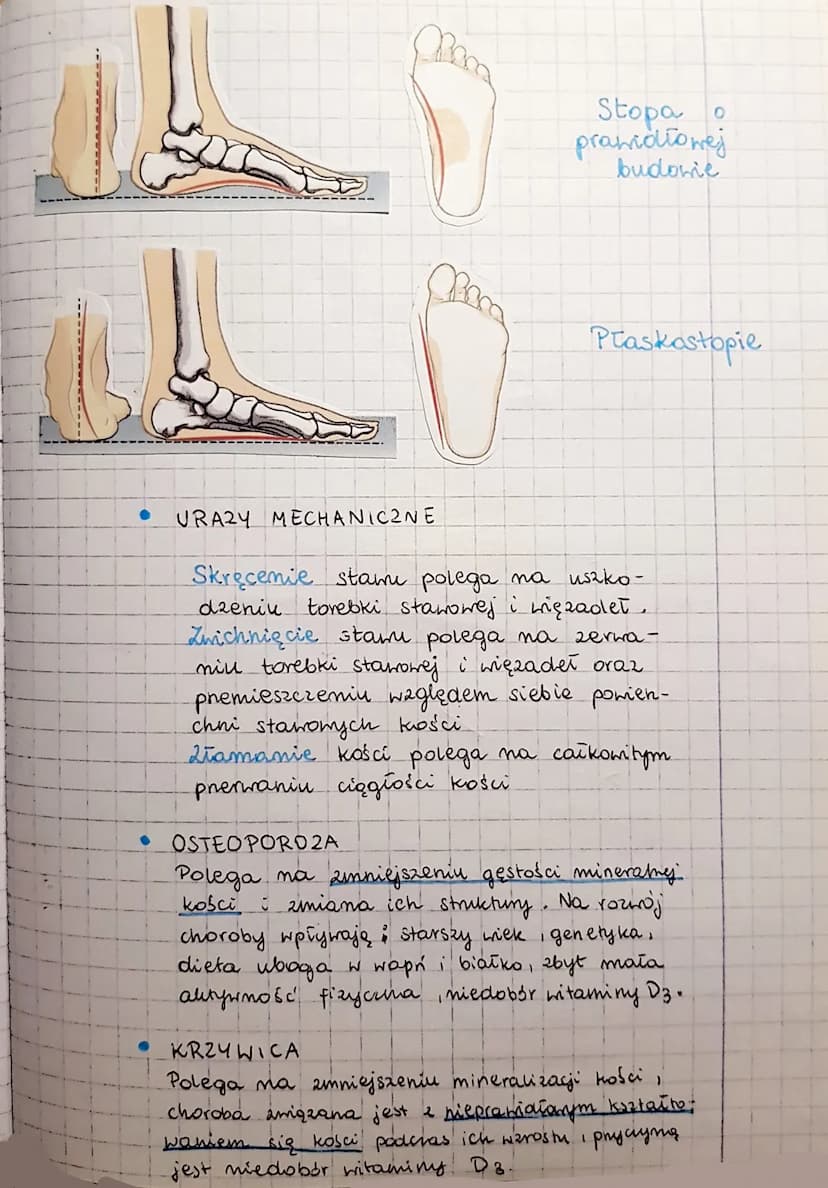 Stopa o
prawidłowej
budowie
Płaskostopie
• URAZY MECHANICZNE
Skręcenie stawu polega na uszko-
dzeniu torebki stawowej i więzadeł.
Zwichnięcie stawu polega na zerwa-
niu torebki stawowej i więzadeł oraz
przemieszczeniu względem siebie powierz-
chni stawowych kości
Złamanie kości polega na całkowitym
przerwaniu ciągłości kości
• OSTEOPOROZA
Polega na zmniejszeniu gęstości mineralnej
kości i zmiana ich struktury. Na rozwój
choroby wpływają: starszy wiek, genetyka,
dieta uboga w wapń i białko, zbyt mała
aktywność fizyczna, niedobór witaminy D3.
• KRZYWICA
Polega na zmniejszeniu mineralizacji kości,
choroba związana jest z nieprawidłowym kształto-
waniem się kości podczas ich wzrostu, przyczyną
jest niedobór witaminy D3.